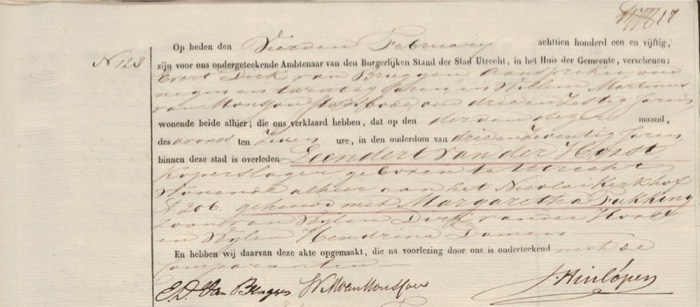 17
N 128
Op heden den Vierden February achttien honderd een en vijftig,
zijn voor ons ondergeteekende Ambtenaar van den Burgerlijken Stand der Stad Utrecht, in het Huis der Gemeente, verschenen:
Evert Dirk van Bruggen Aanspreker oud
negen en twintig jaren en Willem Martinus
van Monsjou stadsbode oud drie en zestig jaren
wonende beide alhier; die ons verklaard hebben, dat op den derden dezer maand,
des avonds ten zeven ure, in den ouderdom van drie en zeventig jaren
binnen deze stad is overleden Leendert van der Horst
koperslager geboren te Utrecht
wonende alhier aan het Nicolaikerkhof
206. gehuwd met Margaretha Fukking
zoon van wijlen Dirk van der Horst
en wijlen Hendrina Damen
En hebben wij daarvan deze akte opgemaakt, die na voorlezing door ons is onderteekend met de
comparanten
E. D. Van Bruggen W M van Monsjou J. Hinlópen